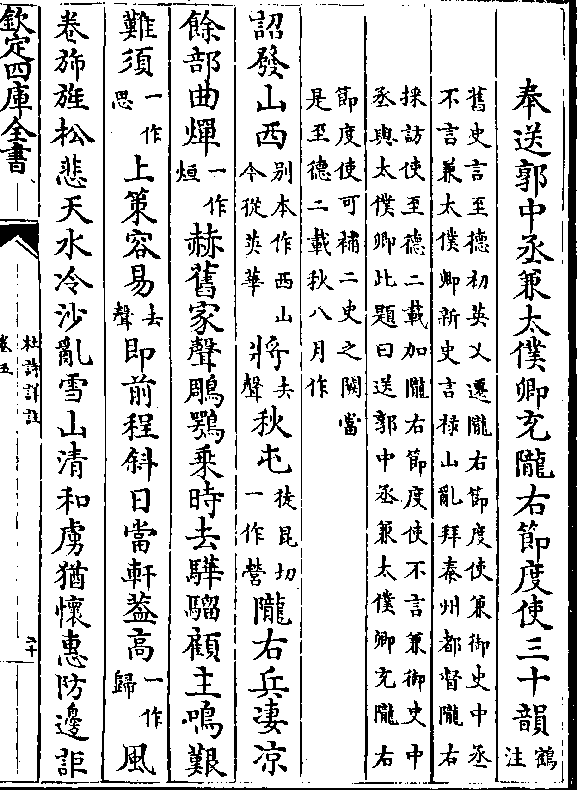 奉送郭中丞兼太僕卿充隴右節度使三十韻鶴注
舊史言至德初英乂遷隴右節度使兼御史中丞
不言兼太僕卿新史言祿山亂拜秦州都督隴右
採訪使至德二載加隴右節度使不言兼御史中
丞與太僕卿此題曰送郭中丞兼太僕卿充隴右
節度使可補二史之闕當
是至德二載秋八月作
詔發山西别本作西山今從英華將去聲秋屯徒昆切一作營隴右兵凄凉
餘部曲燀一作烜赫舊家聲鵰鶚乘時去驊騮顧主鳴艱
難須一作思上策容易去聲即前程斜日當軒蓋高一作歸風
卷旆旌松悲天水冷沙亂雪山清和虜猶懷惠防邊詎
欽定四庫全書
杜詩詳註
卷五